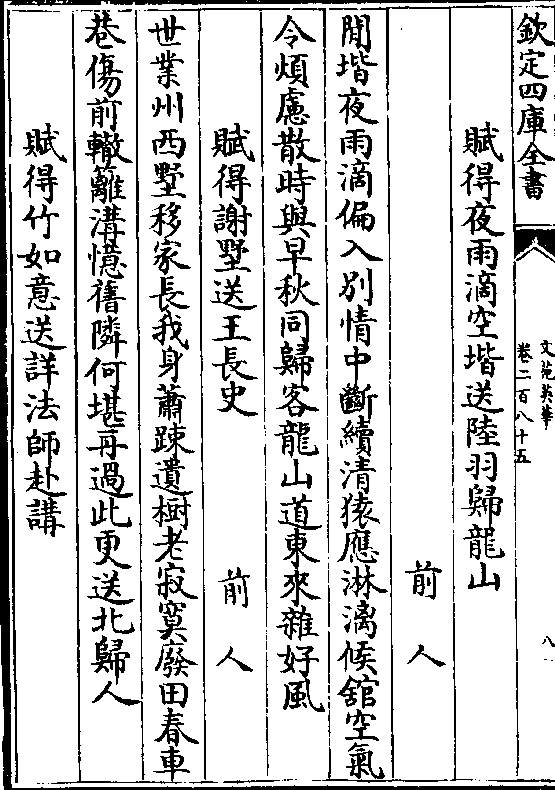 欽定四庫全書
文苑英華
卷二百八十五
八
賦得夜雨滴空堦送陸羽歸龍山
前人
閒堦夜雨滴偏入別情中斷續清猿應淋漓候舘空氣
令煩慮散時與早秋同歸客龍山道東來雜好風
賦得謝墅送王長史
前人
世業州西墅移家長我身蕭踈遺樹老寂寞廢田春車
巷傷前轍籬溝憶舊隣何堪再過此更送北歸人
賦得竹如意送詳法師赴講